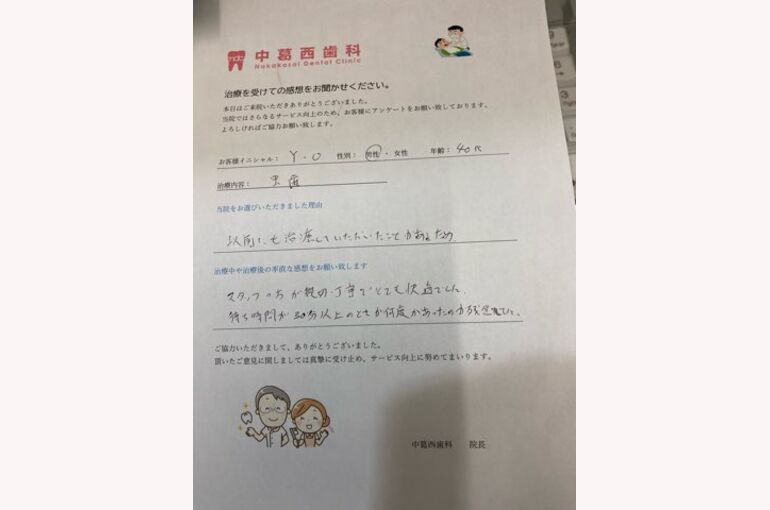 ndc 中葛西歯科
Nakakasai Dental Clinic
治療を受けての感想をお聞かせください。
本日はご来院いただきありがとうございました。
当院ではさらなるサービス向上のため、お客様にアンケートをお願い致しております。
よろしければご協力お願い致します。
お客様イニシャル： Y・O 性別： 男性 ・ 女性 年齢： 40 代
治療内容： 虫歯
当院をお選びいただきました理由
以前にも治療していただいたことがあるため
治療中や治療後の率直な感想をお願い致します
スタッフの方が親切・丁寧でとても快適でした。
待ち時間が30分以上のときが何度かあったのが残念でした。
ご協力いただきまして、ありがとうございました。
頂いたご意見に関しましては真摯に受け止め、サービス向上に努めてまいります。
中葛西歯科 院長